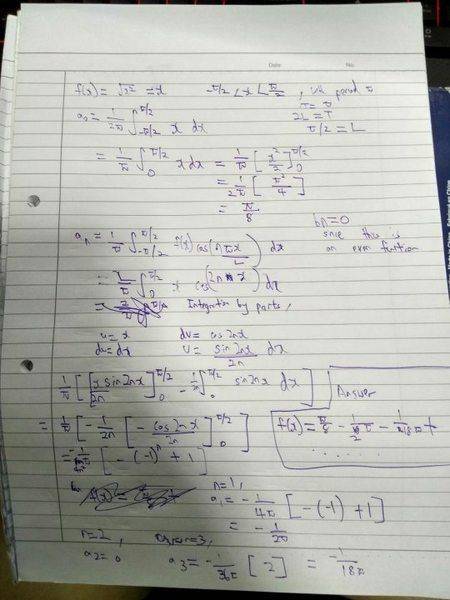 Date No.
f(x) = √x² = x   -π/2 < x < π/2 , with period π
T = π
2L = T
π/2 = L
a₀ = 1/2π ∫_{-π/2}^{π/2} x dx
= 1/π ∫_0^{π/2} x dx = 1/π [x²/2]_0^{π/2}
= 1/2π [π²/4]
= π/8
bn = 0
since this is
an even function
aₙ = 1/π ∫_{-π/2}^{π/2} f(x) cos(nπx/L) dx
= 1/π ∫_0^{π/2} x cos(2n x) dx
= Integration by parts,
u = x   dv = cos 2nx
du = dx   v = sin 2nx/2n dx
1/π [[x sin 2nx/2n]_0^{π/2} - 1/n ∫_0^{π/2} sin 2nx dx]
Answer
= 1/π [-1/2n [-cos 2nx/2n]_0^{π/2}]
f(x) = π/8 - 1/2π - 1/18π +
.......
= [-(-1)ⁿ + 1]
f(x) =
n=1,
a₁ = -1/4π [-(-1) + 1]
= -1/2π
n=2,
a₂ = 0
n=3,
a₃ = -1/36π [2] = -1/18π